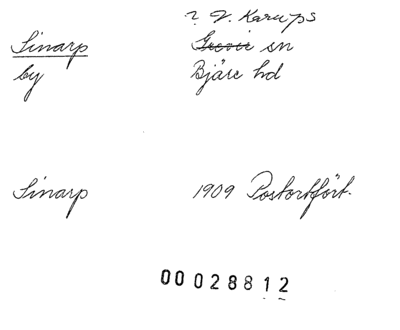 ? V. Karups
Sinarp Grevie sn
by Bjäre hd
Sinarp 1909 Postortfört.
00028812